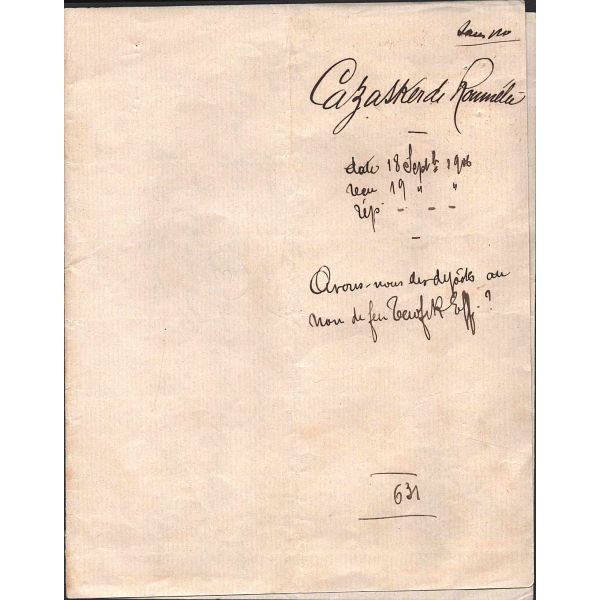 Sans No
Cazasker de Roumélie
date 18 Septb. 1906
reçu 19 " "
rép. - - -
Avons-nous des dépôts au
nom de feu Tewfik Eff. ?
631